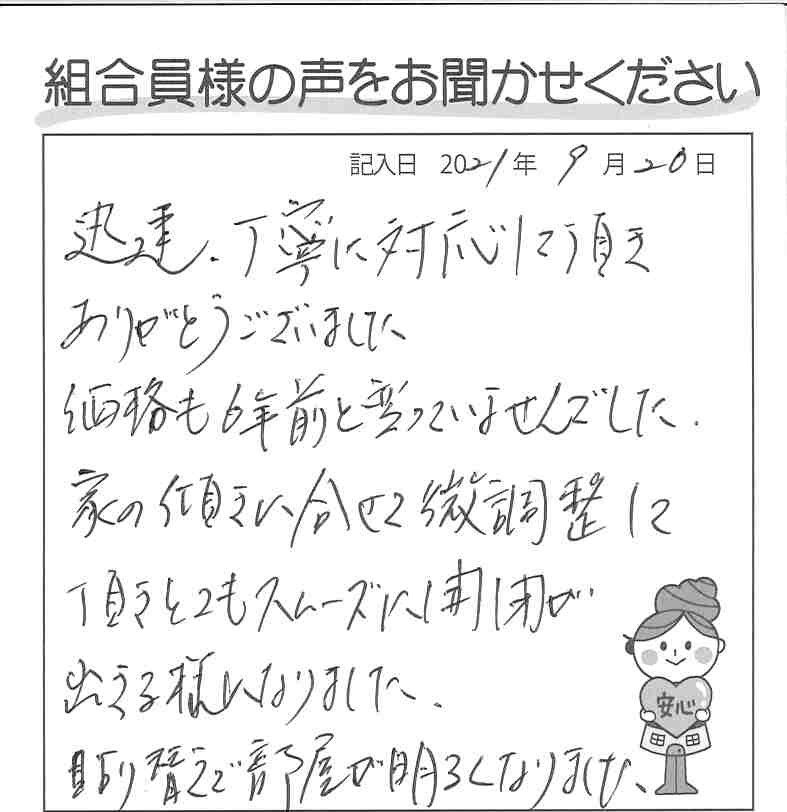 組合員様の声をお聞かせください
記入日 2021年 9月20日
迅速、丁寧に対応して頂き
ありがとうございました
価格も6年前と変っていませんでした。
家の傾きに合せて微調整して
頂きとてもスムーズに開閉が
出来る様になりました。
安心
貼り替えで部屋が明るくなりました、